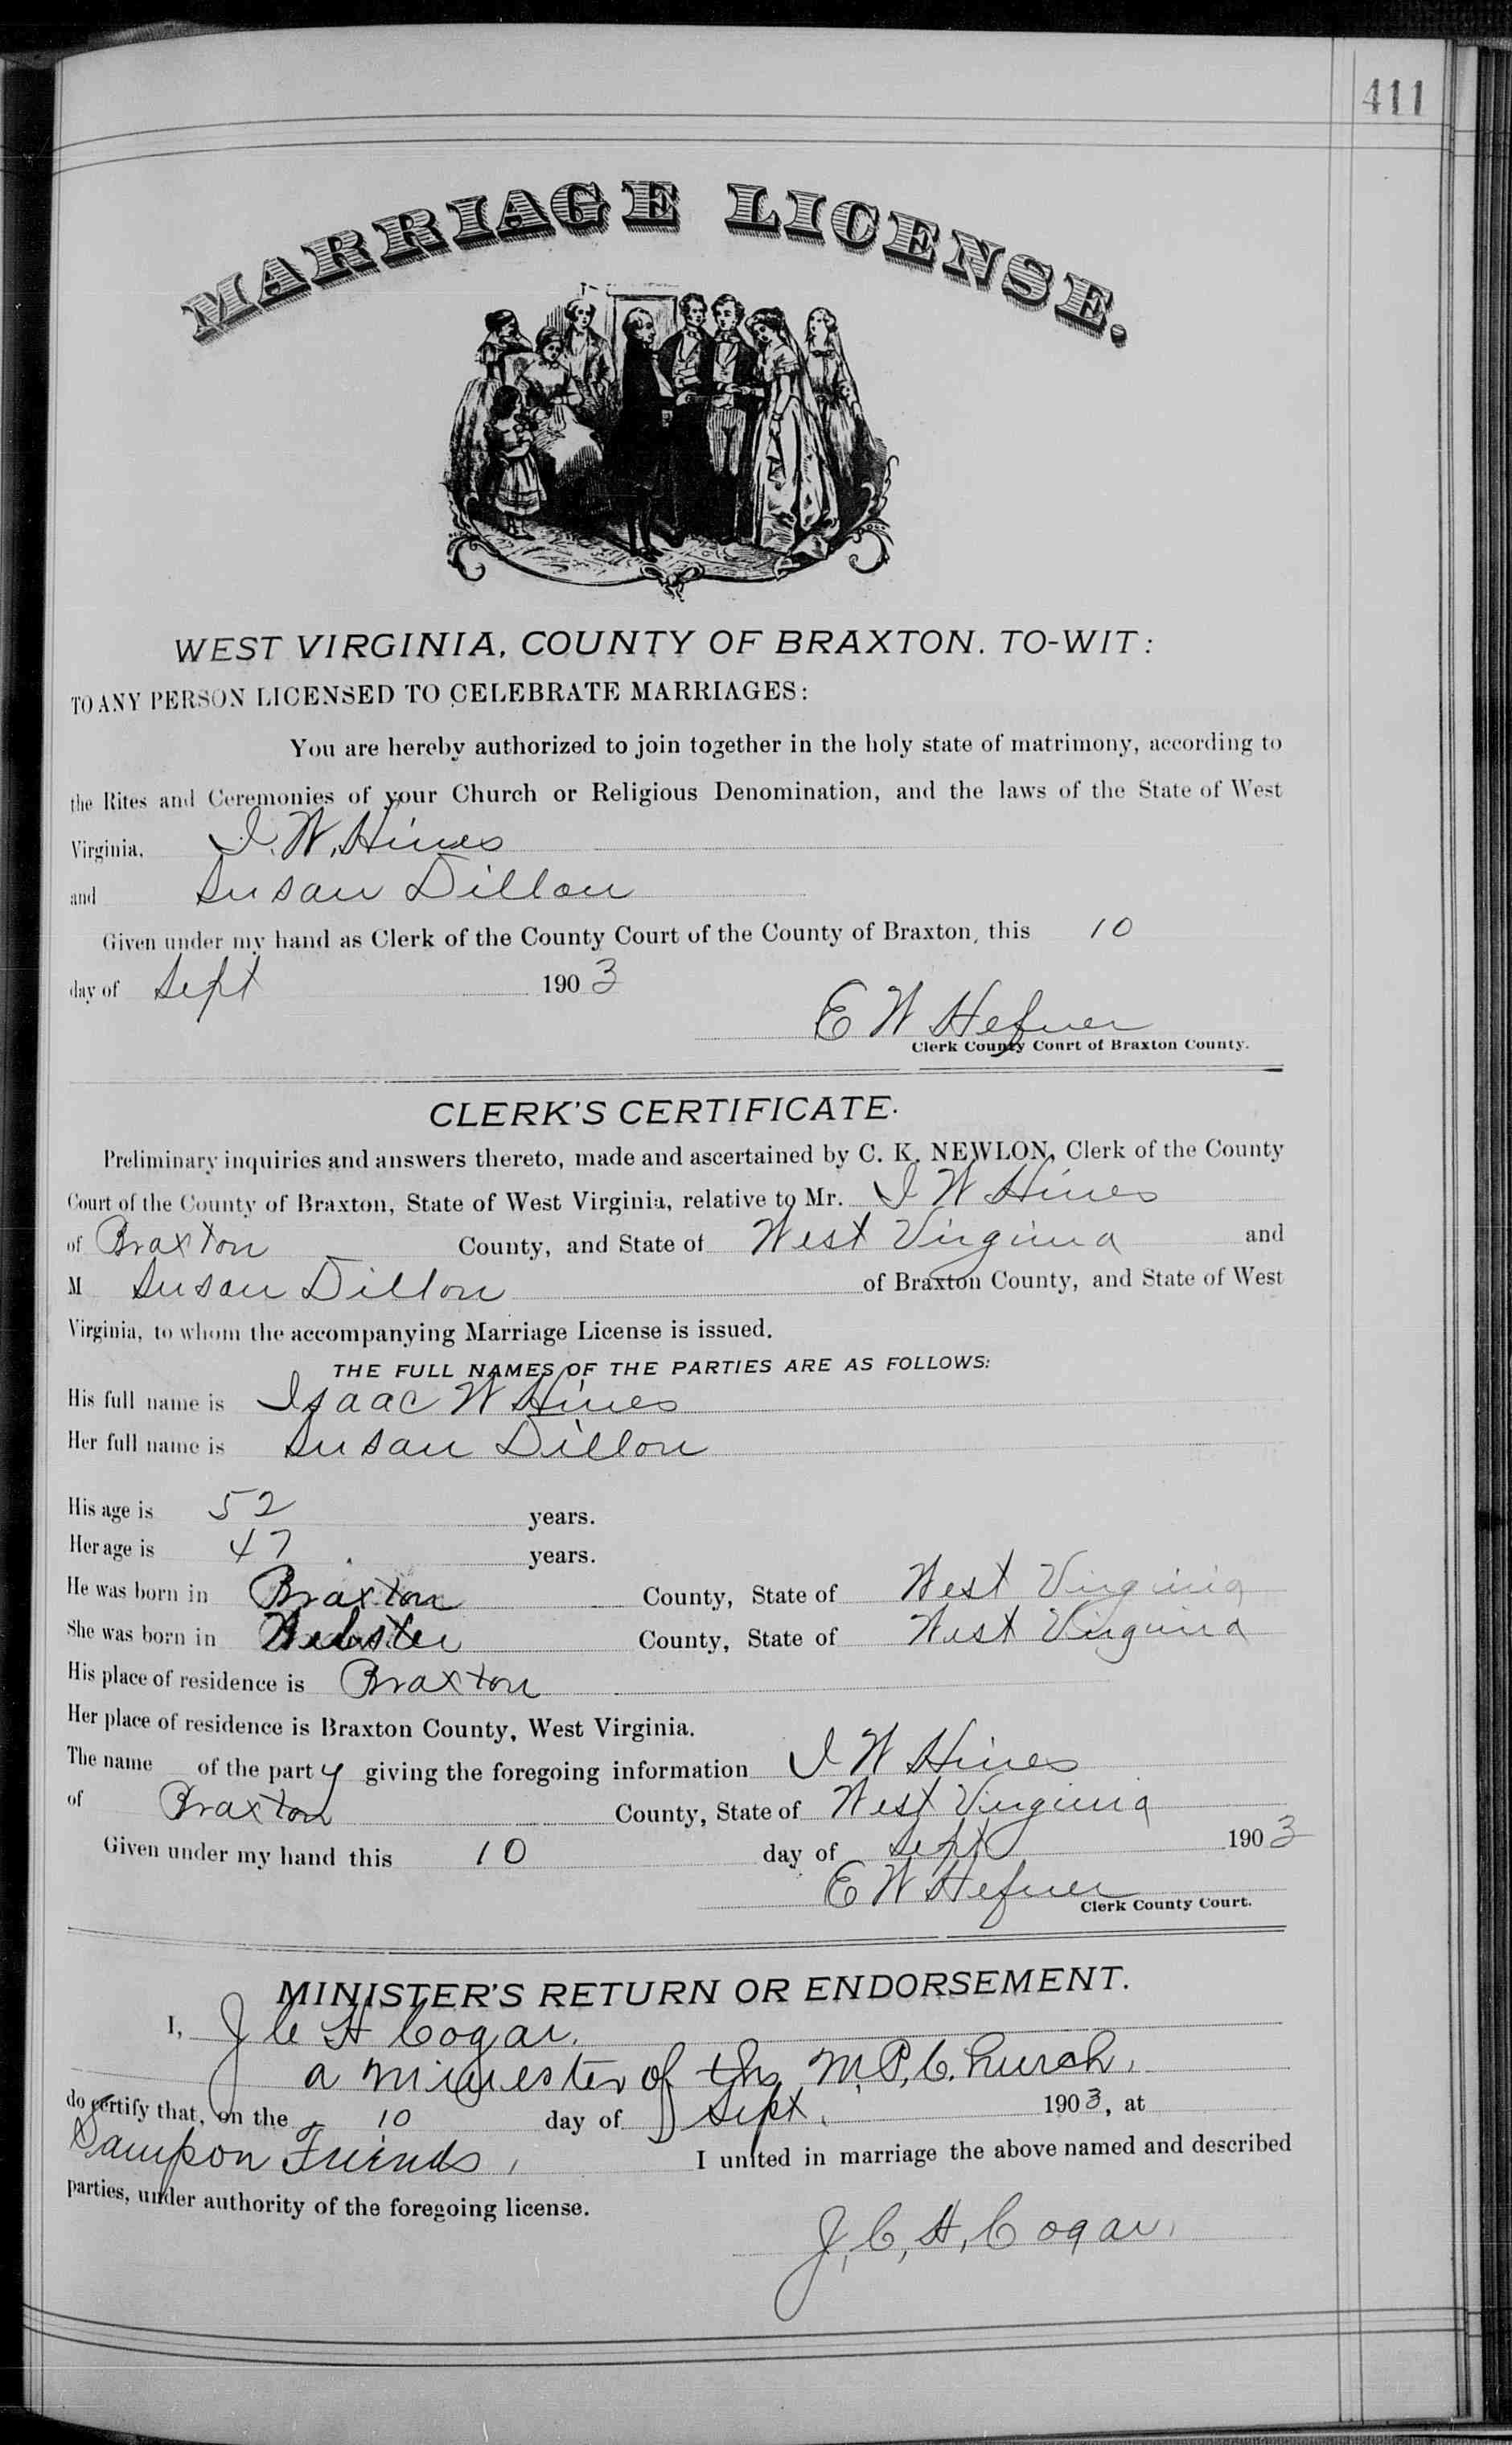 411
MARRIAGE LICENSE.
WEST VIRGINIA, COUNTY OF BRAXTON. TO-WIT:
TO ANY PERSON LICENSED TO CELEBRATE MARRIAGES:
You are hereby authorized to join together in the holy state of matrimony, according to
the Rites and Ceremonies of your Church or Religious Denomination, and the laws of the State of West
Virginia, I. W. Hines
and Susan Dillon
Given under my hand as Clerk of the County Court of the County of Braxton, this 10
day of Sept 1903
E W Hefner
Clerk County Court of Braxton County.
CLERK'S CERTIFICATE.
Preliminary inquiries and answers thereto, made and ascertained by C. K. NEWLON, Clerk of the County
Court of the County of Braxton, State of West Virginia, relative to Mr. I W Hines
of Braxton County, and State of West Virginia and
M Susan Dillon of Braxton County, and State of West
Virginia, to whom the accompanying Marriage License is issued.
THE FULL NAMES OF THE PARTIES ARE AS FOLLOWS:
His full name is Isaac W Hines
Her full name is Susan Dillon
His age is 52 years.
Her age is 47 years.
He was born in Braxton County, State of West Virginia
She was born in Webster County, State of West Virginia
His place of residence is Braxton
Her place of residence is Braxton County, West Virginia.
The name of the party giving the foregoing information I W Hines
of Braxton County, State of West Virginia
Given under my hand this 10 day of Sept 1903
E W Hefner
Clerk County Court.
MINISTER'S RETURN OR ENDORSEMENT.
I, J C H Cogar.
a minister of the M.P. Church.
do certify that, on the 10 day of Sept. 1903, at
Sampson Friends, I united in marriage the above named and described
parties, under authority of the foregoing license.
J. C. H. Cogar.